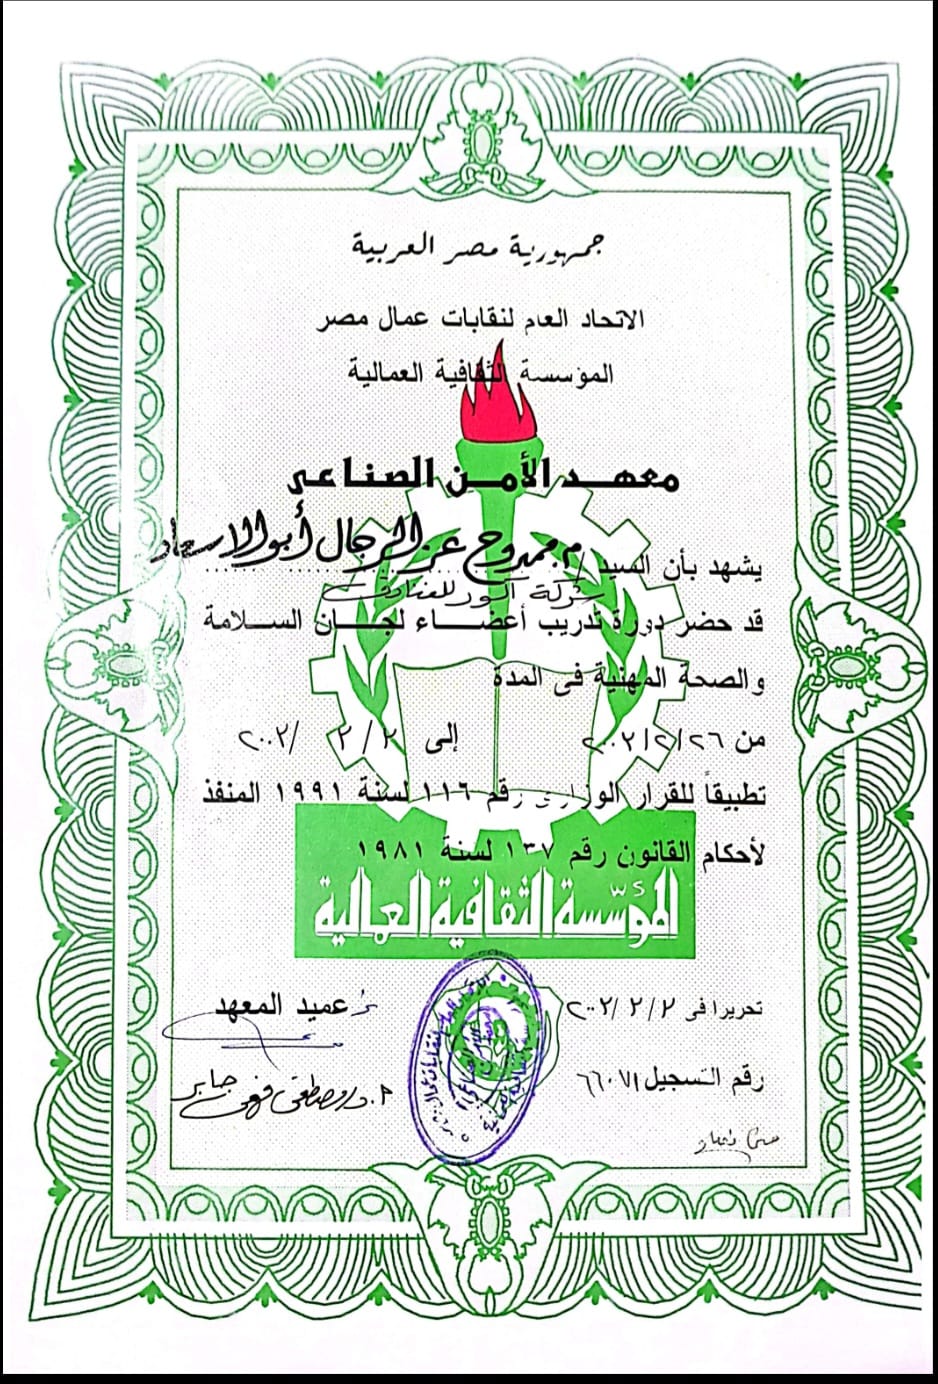 جمهورية مصر العربية
الاتحاد العام لنقابات عمال مصر
المؤسسة الثقافية العمالية
معهد الأمن الصناعى
يشهد بأن السيد / م. ممدوح عز الرجال أبو الاسعاد
شركة للفنادق
قد حضر دورة تدريب أعضاء لجان السلامة
والصحة المهنية فى المدة
من ٢٠٠٢/٢/٢٦ إلى ٢٠٠٢/
تطبيقاً للقرار الوزارى رقم ١١٦ لسنة ١٩٩١ المنفذ
لأحكام القانون رقم ١٣٧ لسنة ١٩٨١
المؤسّسة الثقافية العمالية
تحريرا فى
عميد المعهد
رقم التسجيل ٦٦٠٧١
أ.د/ مصطفى فهمى جابر